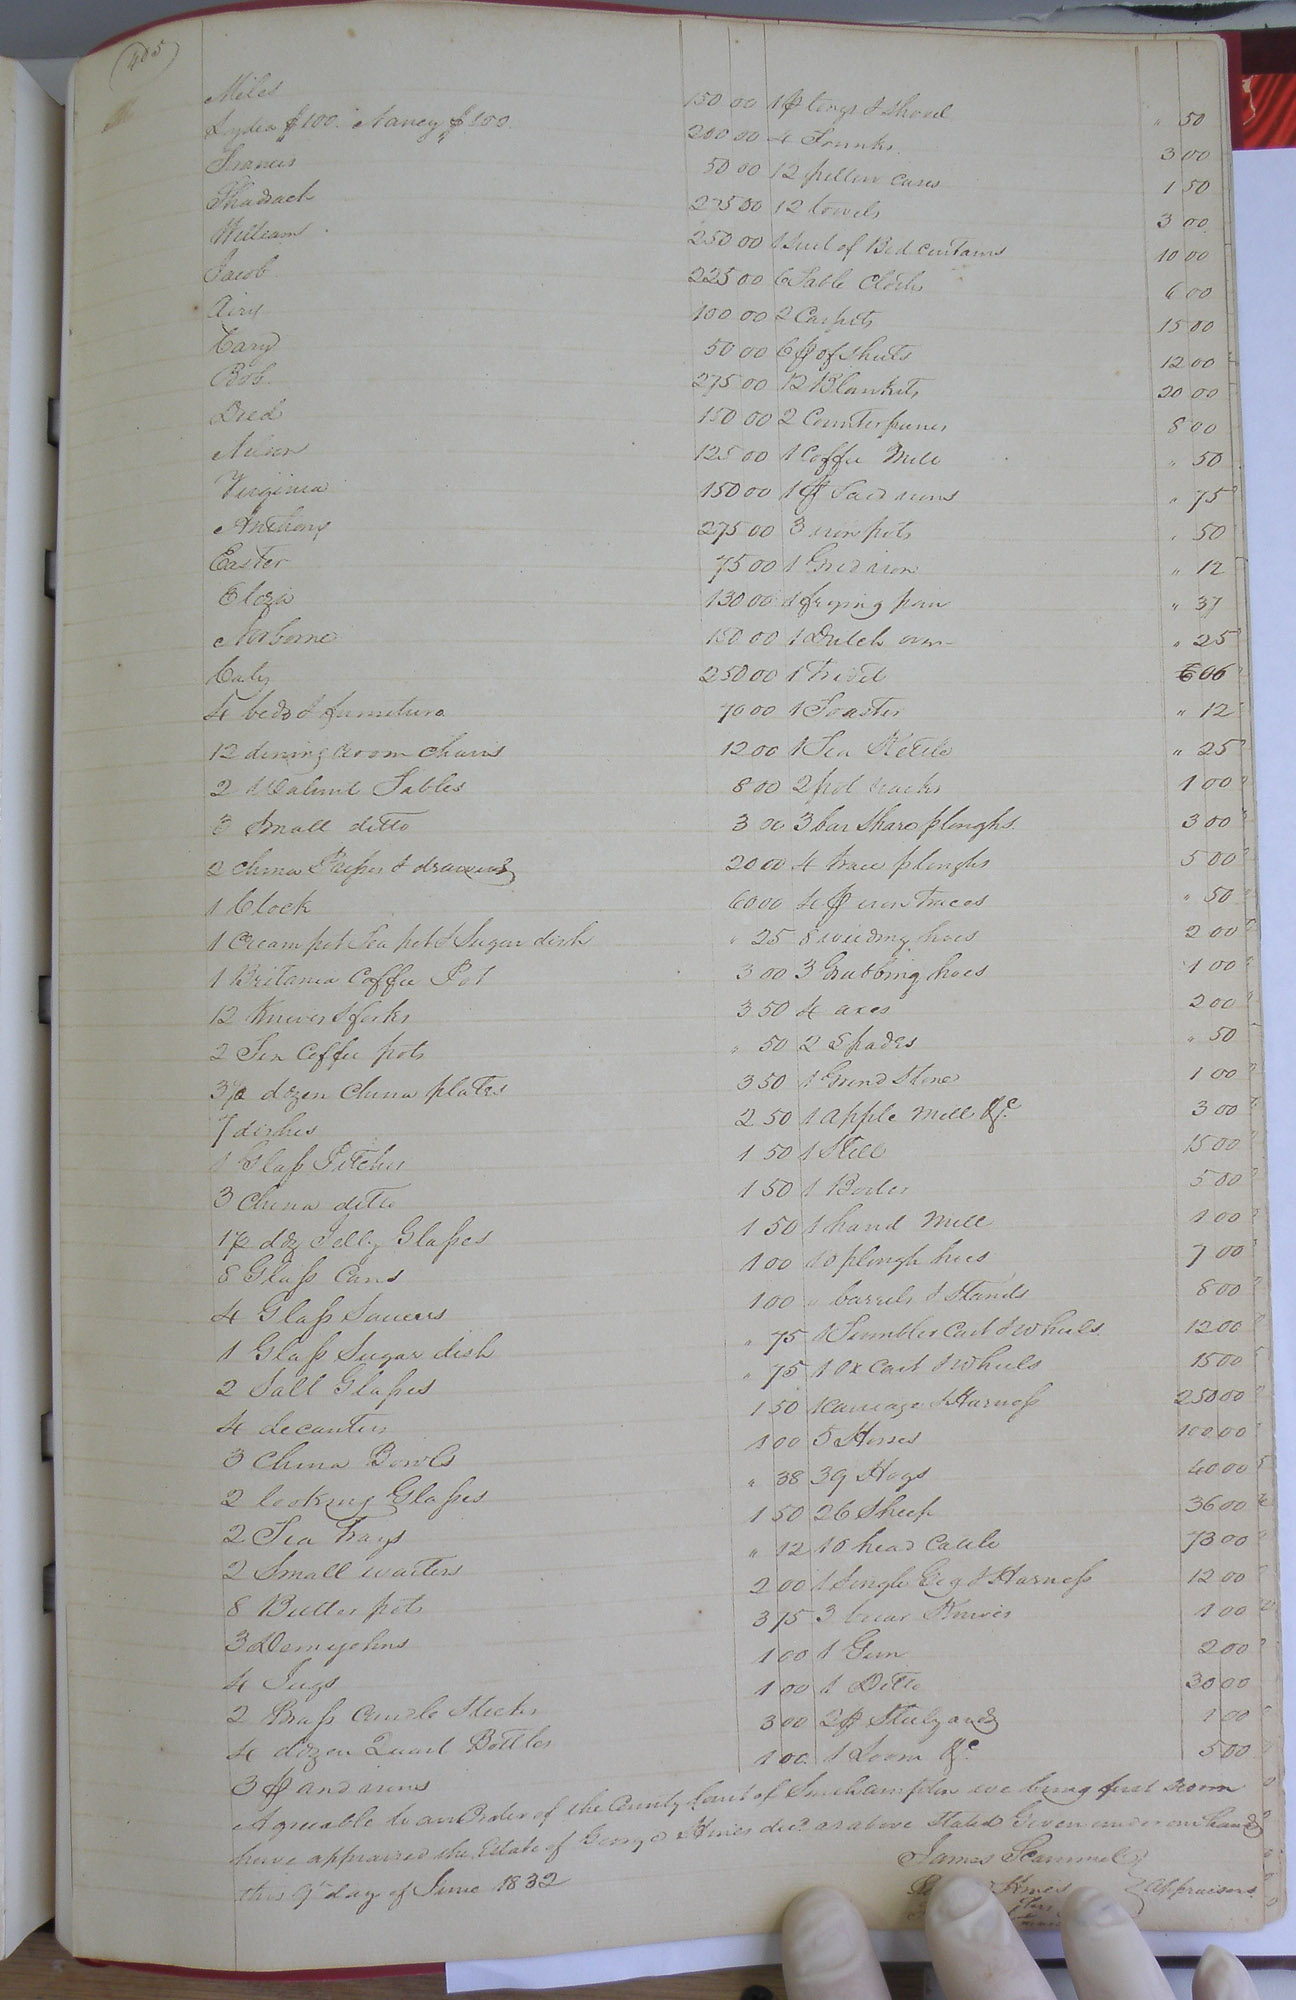 405
Miles 150 00
Lydia $100. Nancy $100. 200 00
Francis 50 00
Shadrach 275 00
William 250 00
Jacob 225 00
Airy 100 00
Cary 50 00
Bob 275 00
Dred 150 00
Nelson 125 00
Virginia 150 00
Anthony 275 00
Easter 75 00
Eliza 130 00
Norborne 150 00
Caty 250 00
4 beds & furniture 70 00
12 dining room chairs 12 00
2 Walnut Tables 8 00
3 Small ditto 3 00
2 China & drawers 20 00
1 Clock 60 00
1 Cream pot Tea pot & Sugar dish " 25
1 Britania Coffee Pot 3 00
12 Knives & forks 3 50
2 Tin Coffee pots " 50
3½ dozen China plates 3 50
7 dishes 2 50
1 Glass Pitcher 1 50
3 China ditto 1 50
1½ doz Jelly Glasses 1 50
8 Glass Cans 1 00
4 Glass Saucers 1 00
1 Glass Sugar dish " 75
2 Salt Glasses " 75
4 decanters 1 50
3 China Bowls 1 00
2 looking Glasses " 38
2 Tea trays 1 50
2 Small waiters " 12
8 Butter pots 2 00
3 Demijohns 3 75
4 Jugs 1 00
2 Brass Candle Sticks 1 00
4 dozen Quart Bottles 3 00
3 p andirons 1 00
1 p tongs & shovel " 50
4 Trunks 3 00
12 pillow cases 1 50
12 towels 3 00
1 Suit of Bed curtains 10 00
6 Table Cloths 6 00
2 Carpets 15 00
6 p of sheets 12 00
12 Blankets 20 00
2 Counterpanes 8 00
1 Coffee Mill " 50
1 p Sad irons " 75
3 iron pots " 50
1 Gridiron " 12
1 frying pan " 37
1 Dutch oven " 25
1 trivet 06
1 Toaster " 12
1 Tea Kettle " 25
2 pot racks 1 00
3 bar Share ploughs 3 00
4 trace ploughs 5 00
4 p iron traces " 50
8 weeding hoes 2 00
3 Grubbing hoes 1 00
4 axes 2 00
2 Spades " 50
1 Grind Stone 1 00
1 apple Mill &c 3 00
1 Still 15 00
1 Boiler 5 00
1 hand Mill 1 00
10 plough hoes 7 00
" barrels & Stands 8 00
1 Tumbler Cart & Wheels 12 00
1 Ox Cart & Wheels 15 00
1 Carriage & Harness 250 00
5 Horses 100 00
39 Hogs 40 00
26 Sheep 36 00
10 head Cattle 73 00
1 Single Gig & Harness 12 00
3 Knives 1 00
1 Gun 2 00
1 Ditto 30 00
2 p Steelyards 1 00
1 Loom &c 5 00
Agreeable to an Order of the County Court of Southampton we being first sworn
have appraised the Estate of George Hines decd as above Stated Given under our hands
this 9th day of June 1832
James Scammell
Hines
Appraisers